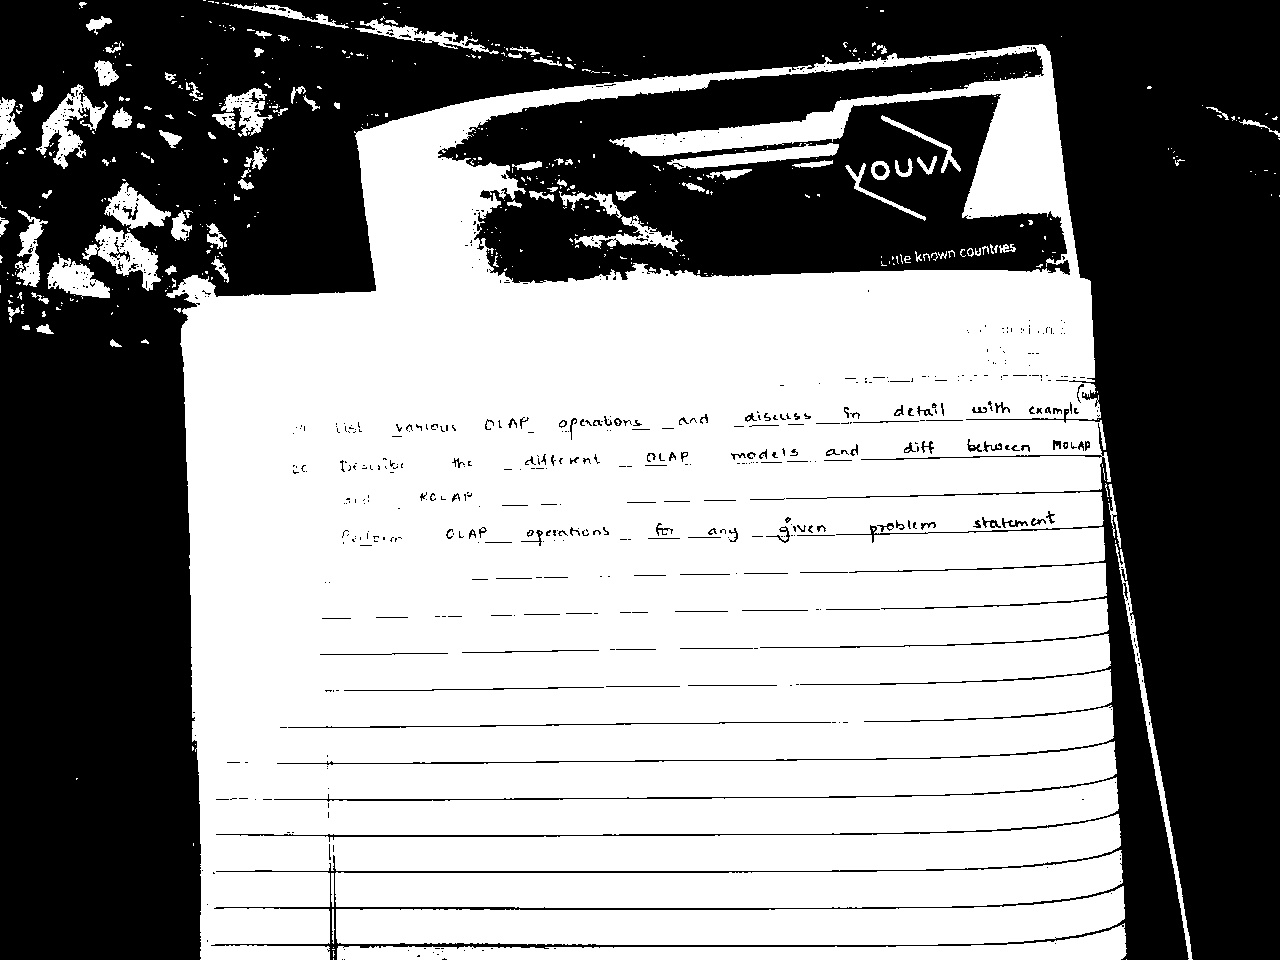 YOUVA
Little known countries
List various OLAP operations and discuss in detail with example (cube)
Describe the different OLAP models and diff between MOLAP
and ROLAP
Perform OLAP operations for any given problem statement